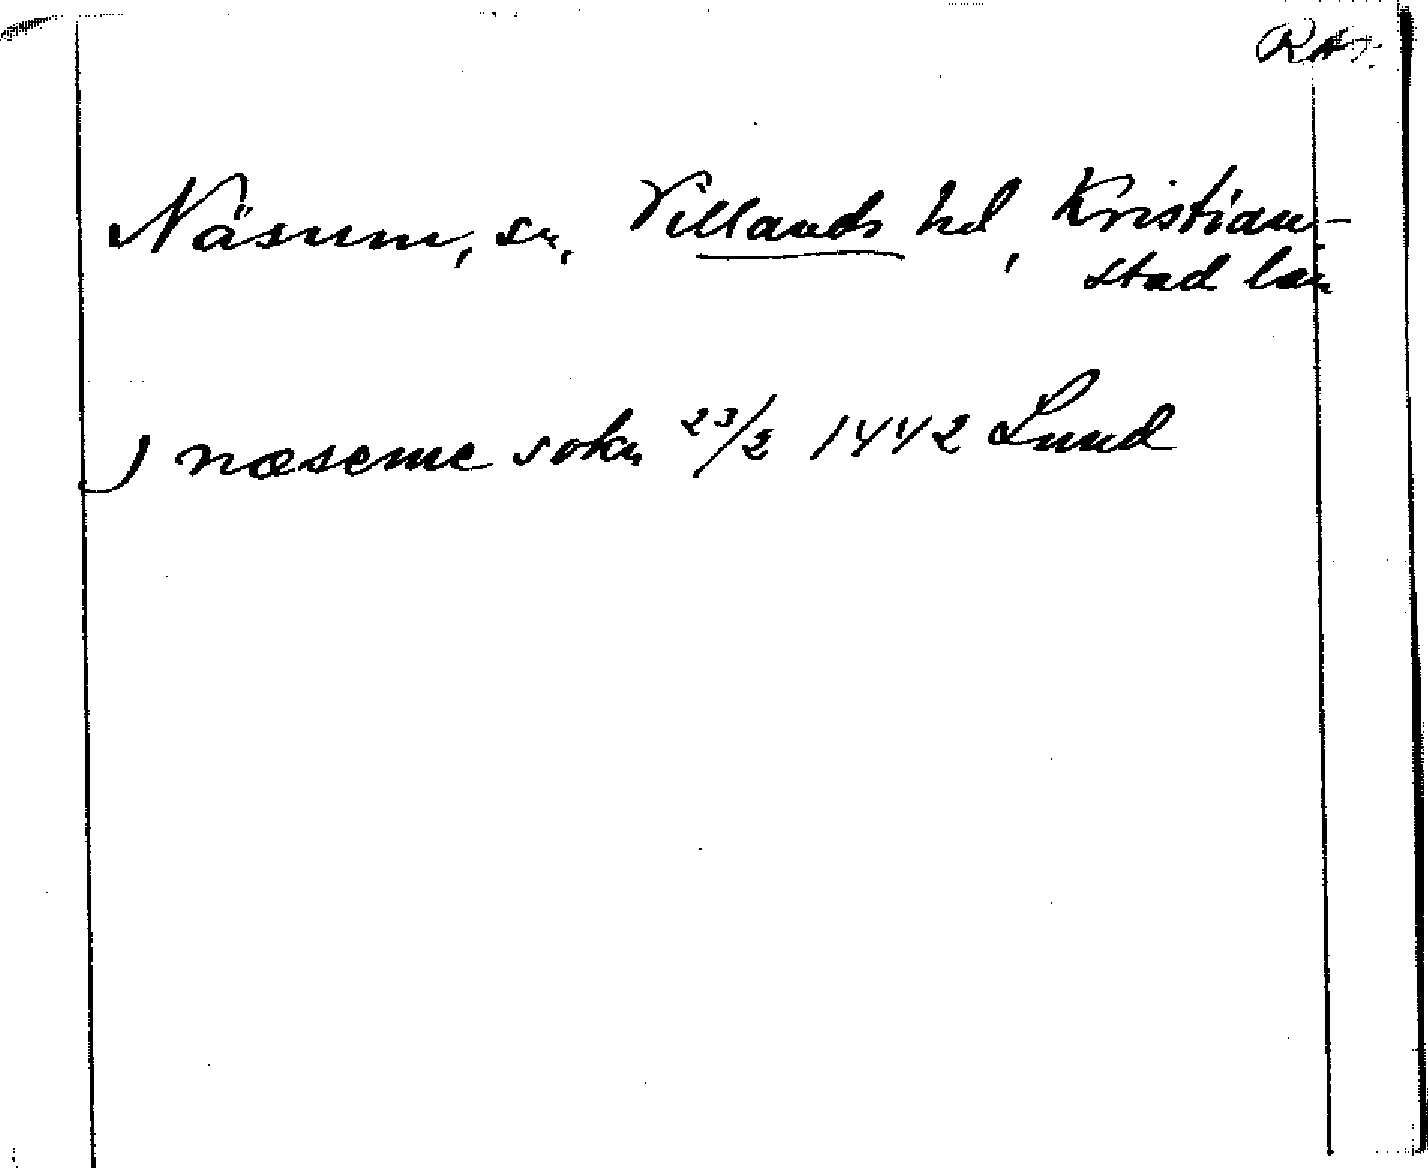 RA.
Näsum, sn, Villands hd, Kristian-
stad län
J næseme sokn 23/2 1442 Lund